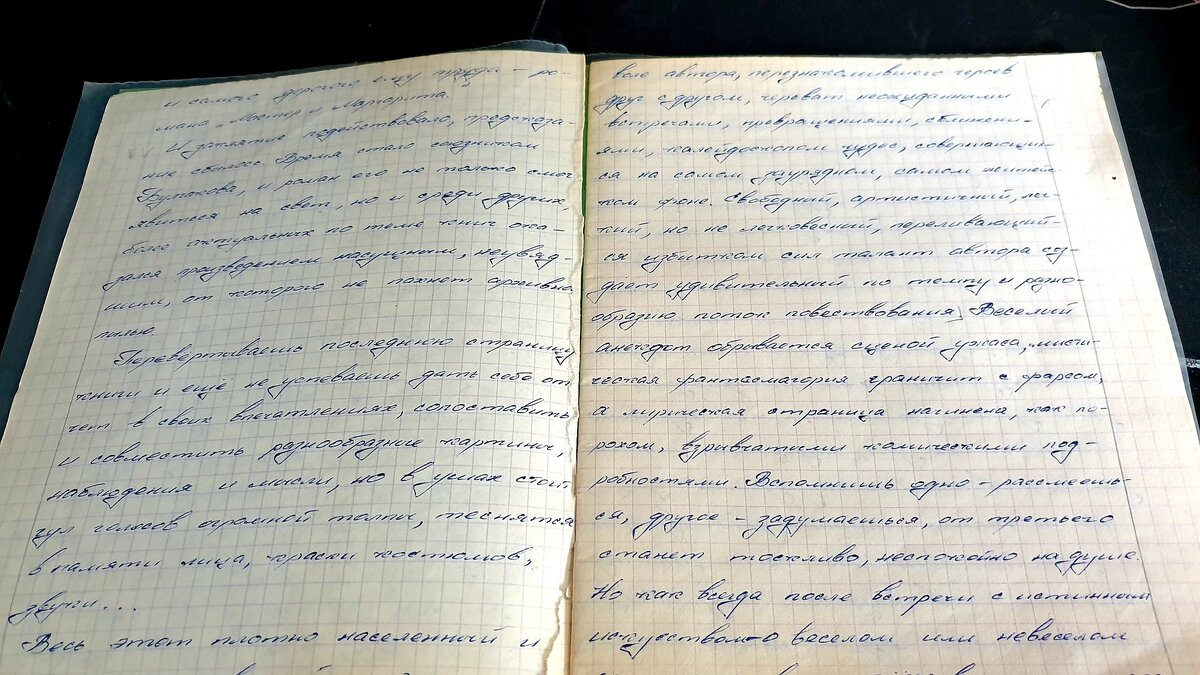 и самого дорогого ему труда – ро-
мана „Мастер и Маргарита."
И заклятие подействовало, предсказа-
ние сбылось. Время стало союзником
Булгакова, и роман его не только смог
явиться на свет, но и среди других,
более актуальных по теме книг ока-
зался произведением насущным, неувяд-
шим, от которого не пахнет архивной
пылью.
Перевертываешь последнюю страницу
книги и ещё не успеваешь дать себе от-
чет в своих впечатлениях, сопоставить
и совместить разнообразные картины,
наблюдения и мысли, но в ушах стоит
гул голосов огромной толпы, теснятся
в памяти лица, краски костюмов,
звуки...
Весь этот плотно населенный и
воле автора, перезнакомившего героев
друг с другом, чреват неожиданными
встречами, превращениями, сближени-
ями, калейдоскопом чудес, совершающих-
ся на самом заурядном, самом житейс-
ком фоне. Свободный, артистичный, лег-
кий, но не легковесный, переливающий-
ся избытком сил талант автора соз-
дает удивительный по темпу и разно-
образию поток повествования. Веселый
анекдот обрывается сценой ужаса, мисти-
ческая фантасмагория граничит с фарсом,
а лирическая страница начинена, как по-
рохом, взрывчатыми комическими под-
робностями. Вспомнишь одно – рассмеешь-
ся, другое – задумаешься, от третьего
станет тоскливо, неспокойно на душе.
Но как всегда после встречи с истинным
искусством – о веселом или невеселом